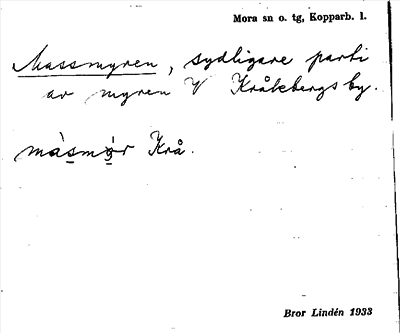 Mora sn o. tg, Kopparb. l.
Massmyren, sydligare parti
av myren V Kråkbergs by.
màsmór Krå.
Bror Lindén 1933